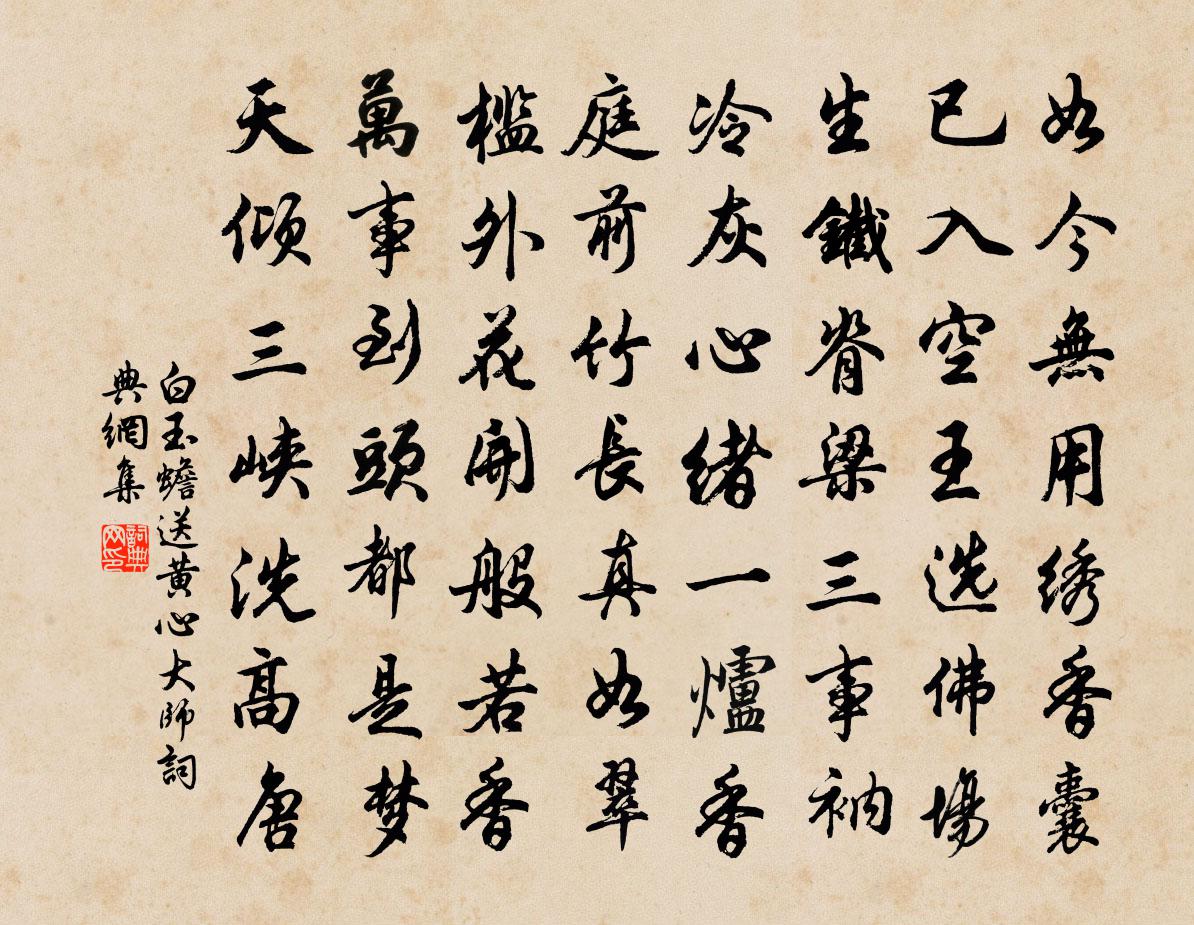 如今無用绣香囊
已入空王选佛場
生鐵脊梁三事衲
冷灰心緒一爐香
庭前竹長真如翠
檻外花開般若香
萬事到頭都是梦
天倾三峡洗高唐
白玉蟾送黄心大師詞
典網集
詞典
网印